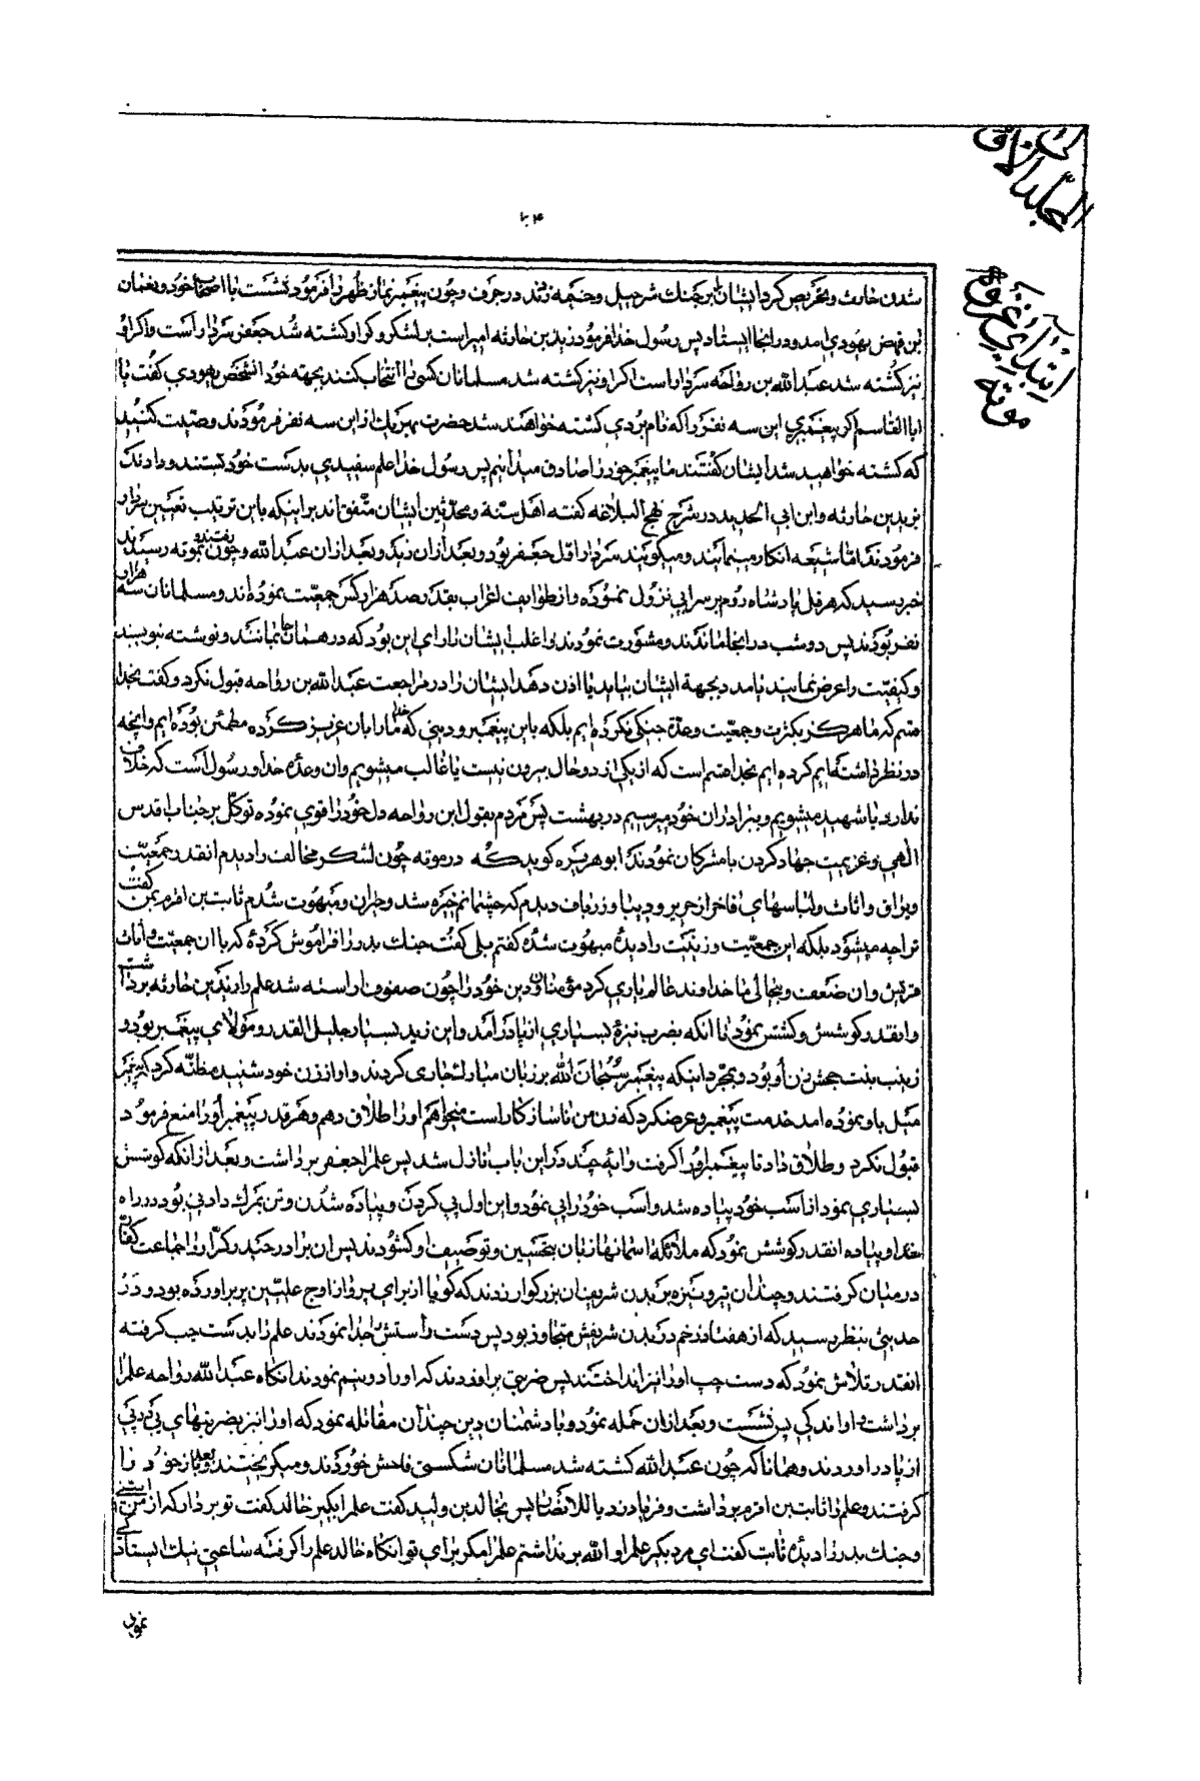 المجلد الاول
ابتدای غزوه
موته
شدن حارث و تحریص کرد ایشان را بر جنك شرجیل و خیمه زدند در جرف و چون پیغمبر نماز ظهر را فرمود نشست با اصحاب خود و نعمان
ابن فهض یهودی امد و در انجا ایستاد پس رسول خدا فرمود زید بن حارثه امیر است بر لشکر و اکر او کشته شد جعفر سردار است و اکر او
نیز کشته شد عبد الله بن رواحه سردار است اکر او نیز کشته شد مسلمانان کسی را انتخاب کنند بجهة خود انشخص یهودی کفت یا
ابا القاسم اکر پیغمبری این سه نفر را که نام بردی کشته خواهند شد حضرت بهر یك از این سه نفر فرمودند وصیت کنید
که کشته خواهید شد ایشان کفتند ما پیغمبر خود را صادق میدانیم پس رسول خدا علم سفیدی بدست خود بستند و دادند
بزید بن حارثه و ابن ابی الحدید در شرح نهج البلاغه کفته اهل سنة و محدثین ایشان متفق اند بر اینکه باین ترتیب تعیین سردار
فرمودند اما شیعه انکار مینمایند و میکویند سردار اول جعفر بود و بعد از ان زید و بعد از ان عبد الله و چون بموته رسیدند
خبر رسید که هرقل پادشاه روم بر سرابی نزول نموده و از طوایف اعراب بقدر صد هزار کس جمعیت نموده اند و مسلمانان سه هزار
نفر بودند پس دو شب در انجا ماندند و مشورت نمودند و اغلب ایشان را رای این بود که در همان جا بمانند و نوشته نویسند
و کیفیت را عرض نمایند یا مدد بجهة ایشان بیاید یا اذن دهد ایشان را در مراجعت عبد الله بن رواحه قبول نکرد و کفت بخدا
قسم که ما هرکز بکثرت و جمعیت و عدة جنکی نکرده ایم بلکه باین پیغمبر و دینی که خدا ما را بان عزیز کرده مطمئن بوده ایم و انچه
در نظر داشته ایم کرده ایم بخدا قسم است که از یکی از دو حال بیرون نیست یا غالب میشویم و ان وعده خدا و رسول است که خلاف
ندارد یا شهید میشویم و ببرادران خود میرسیم در بهشت پس مردم بقول ابن رواحه دل خود را قوی نموده توکل بر جناب اقدس
الهی و عزیمت جهاد کردن با مشرکان نمودند ابو هریره کوید که در موته چون لشکر مخالف را دیدم انقدر جمعیت
و یراق و اثاث و لباسهای فاخر از حریر و دیبا و زرباف دیدم که چشمانم خیره شد و حیران و مبهوت شدم ثابت بن اقرم بمن کفت
ترا چه میشود بلکه این جمعیت و زینت را دیدهٔ مبهوت شدهٔ کفتم بلی کفت جنك بدر را فراموش کردهٔ که با ان جمعیت و اثاث
قریش و ان ضعف و بیحالی ما خداوند عالم یاری کرد مؤمنان و دین خود را چون صفوف اراسته شد علم را زید بن حارثه برداشت
و انقدر کوشش و کشش نمود تا انکه بضرب نیزهٔ بسیاری از پا درامد و این زید بسیار جلیل القدر و مولای پیغمبر بود و
زینب بنت جحش زن او بود و بمجرد اینکه پیغمبر سبحان الله بر زبان مبارك جاری کردند و او از زن خود شنید مظنه کرد که پیغمبر
میل باو نموده امد خدمت پیغمبر و عرض کرد که زن من ناساز کار است میخواهم او را طلاق دهم و هر قدر پیغمبر او را منع فرمود
قبول نکرد و طلاق داد تا پیغمبر او را کرفت و ایهٔ چند در این باب نازل شد پس علم را جعفر برداشت و بعد از انکه کوشش
بسیاری نمود از اسب خود پیاده شد و اسب خود را پی نمود و این اول پی کردن و پیاده شدن و تن بمرك دادنی بود در راه
خدا و پیاده انقدر کوشش نمود که ملائکهٔ اسمانها زبان بتحسین و توصیف او کشودند پس ان برادر حیدر کرار را جماعت کفار
در میان کرفتند و چندان تیر و نیزه بر بدن شریف ان بزرکوار زدند که کویا از برای پرواز اوج علیین پر براورده بود و در
حدیثی بنظر رسید که از هفتاد زخم در بدن شریفش متجاوز بود پس دست راستش را جدا نمودند علم را بدست چپ کرفته
انقدر تلاش نمود که دست چپ او را نیز انداختند پس ضربتی بر او زدند که او را دو نیم نمودند انکاه عبد الله رواحه علم را
برداشت و او اندکی پس نشست و بعد از ان حمله نمود و با دشمنان دین چندان مقاتله نمود که او را نیز بضربتهای پی در پی
از پا در اوردند و همانا که چون عبد الله کشته شد مسلمانان شکستی فاحش خوردند و میکریختند و بعد باز خود را
کرفتند و علم را ثابت بن اقرم برداشت و فریاد زد یا للانصار پس بخالد بن ولید کفت علم را بکیر خالد کفت تو بردار که از من مسنی
و جنك بدر را دیدهٔ ثابت کفت ای مرد بکیر علم را و الله بر نداشتم علم را مکر برای تو انکاه خالد علم را کرفته ساعتی نیك ایستادکی
نمود